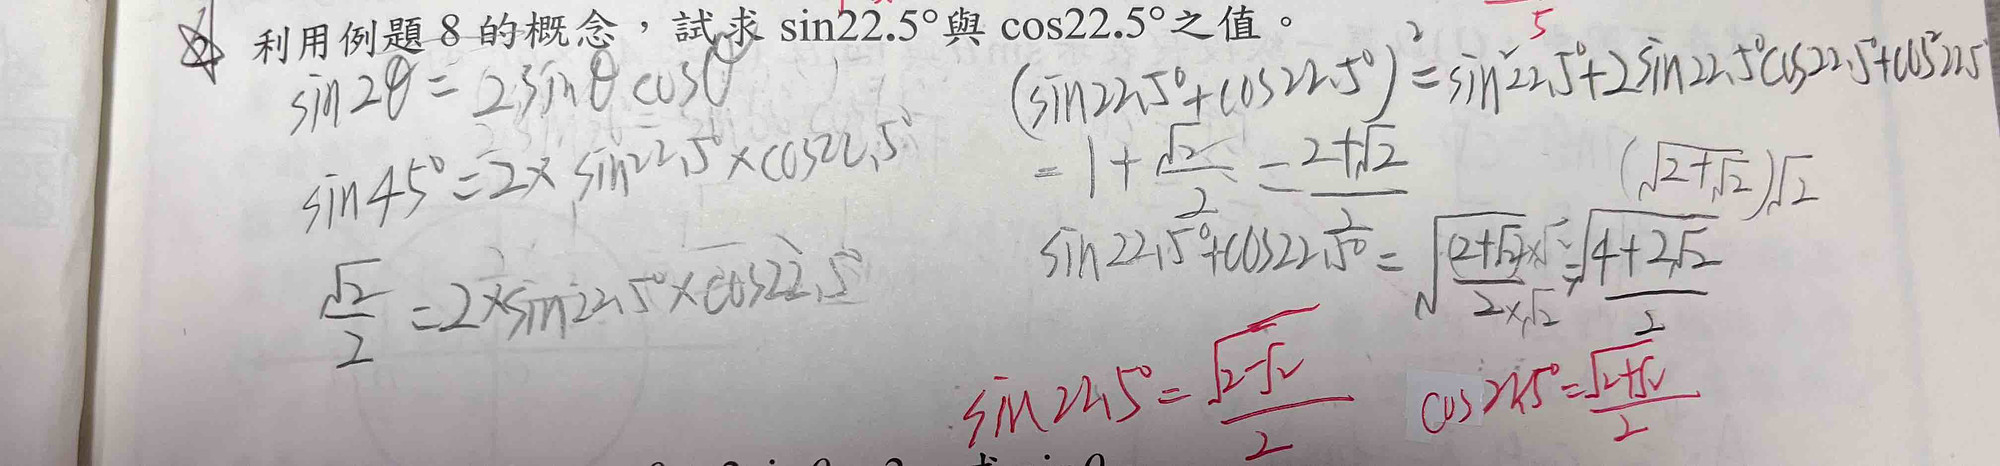 5
2. 利用例題 8 的概念，試求 sin22.5°與 cos22.5°之值。
sin2θ = 2sinθcosθ
sin45° = 2× sin22.5°×cos22.5°
√2/2 = 2×sin22.5°×cos22.5°
(sin22.5°+cos22.5°)² = sin²22.5°+2sin22.5°cos22.5°+cos²22.5
= 1+√2/2 = (2+√2)/2
(√(2+√2))√2
sin22.5°+cos22.5° = √((2+√2)×√2/(2×√2)) = √(4+2√2)/2
sin22.5° = √(2-√2)/2
cos22.5° = √(2+√2)/2